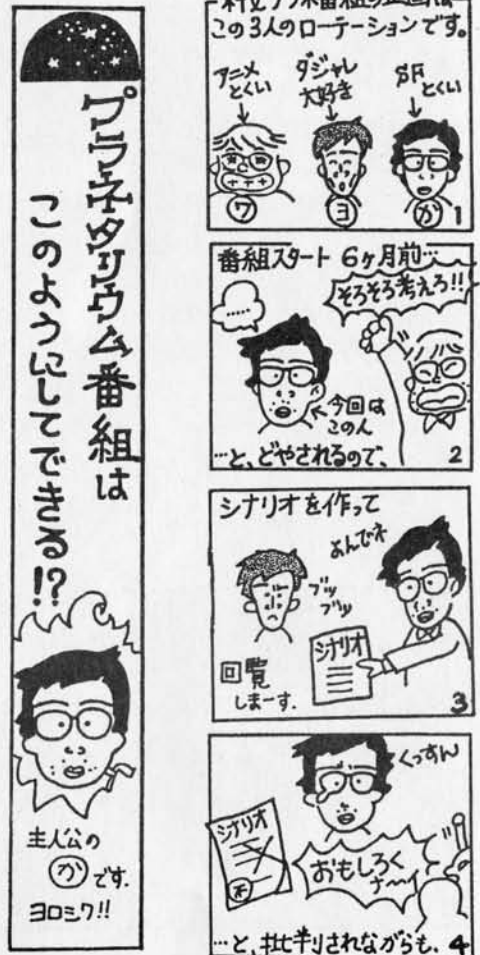 プラネタリウム番組は
このようにしてできる!?
主人公の
か です.
ヨロシク!!
この3人のローテーションです。
アニメ
とくい
ダジャレ
大好き
SF
とくい
ワ
ヨ
か
1
番組スタート 6ヶ月前…
そろそろ考えろ!!
……
今回は
この人
…と、どやされるので、
2
シナリオを作って
よんでネ
ブツ
ブツ
シナリオ
回覧
しまーす.
3
くっすん
シナリオ
おもしろく
な〜い
…と、批判されながらも、
4